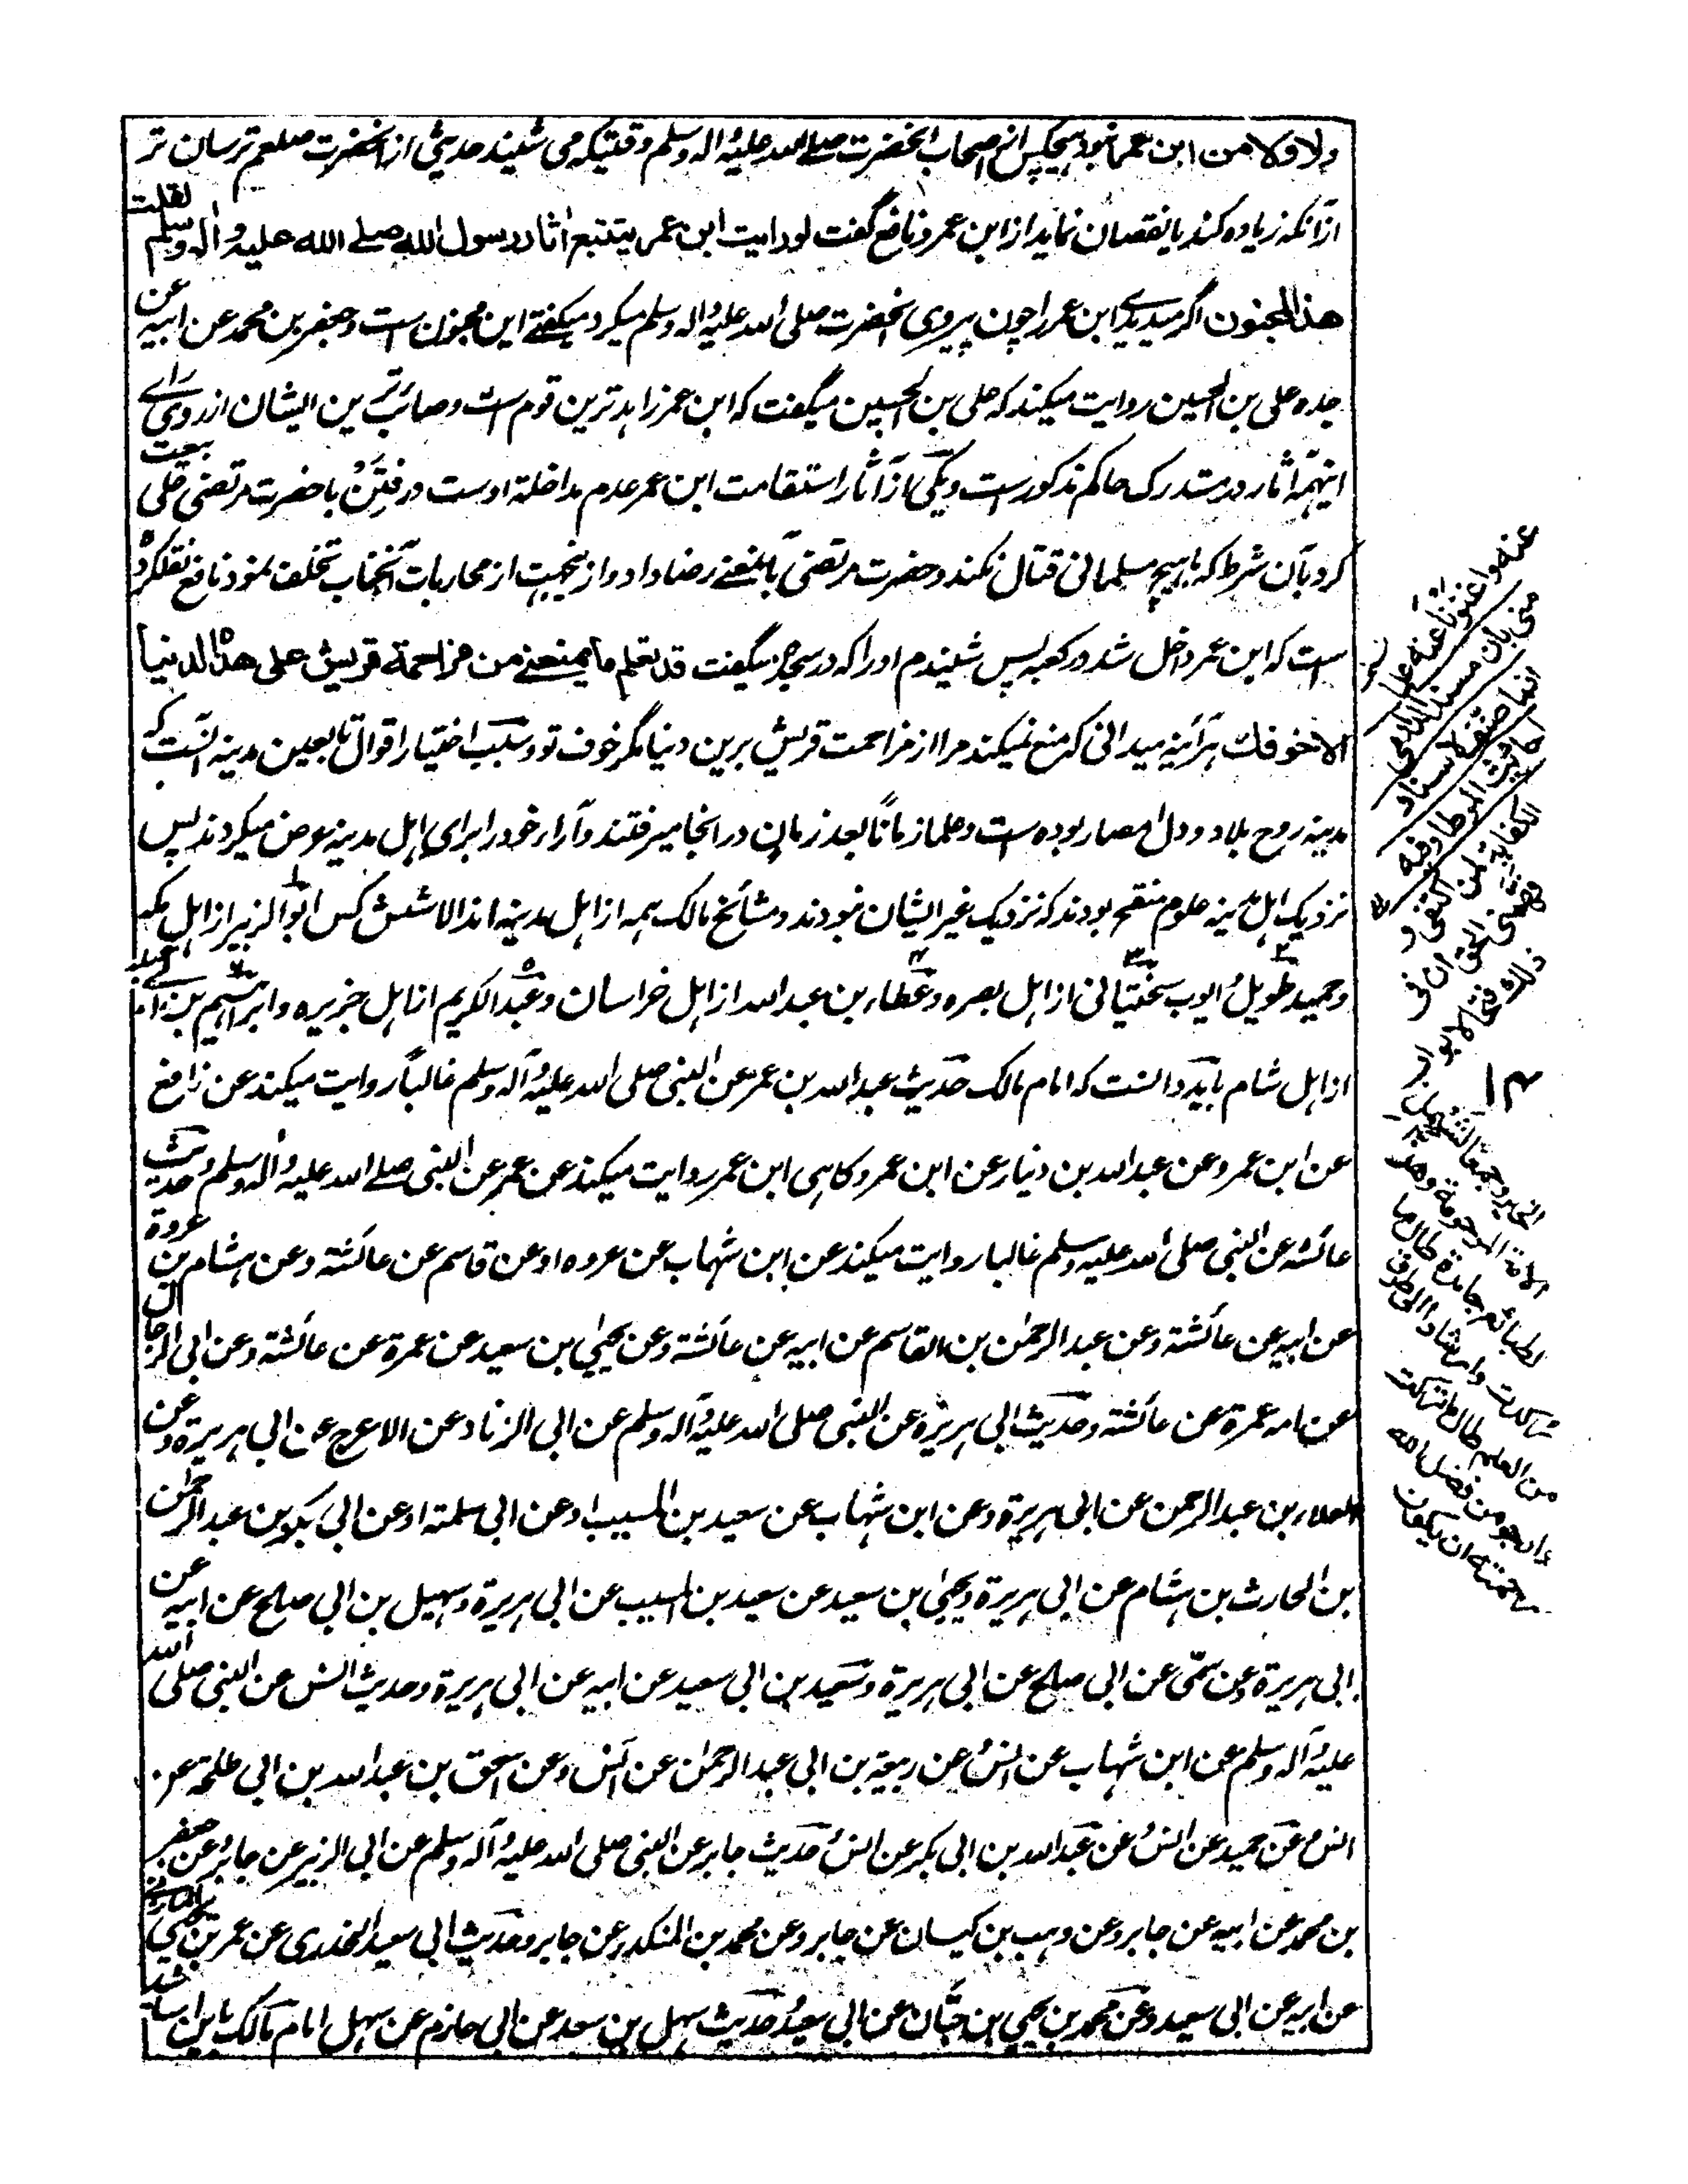 ولا ولا من ابن عمر نبود هیچکس از اصحاب آنحضرت صلے الله علیه و اله وسلم وقتیکه می شنید حدیثی از آنحضرت صلعم ترسان تر
از آنکه زیاده کند یا نقصان نماید از ابن عمر و نافع گفت لو رایت ابن عمر یتتبع اثار رسول الله صلے الله علیه و اله وسلم لقلت
هذا لمجنون اگر میدیدے ابن عمر را چون پیروی آنحضرت صلی الله علیه و اله وسلم میکرد میگفتے این مجنون است و جعفر بن محمد عن ابیه عن
جده علی بن الحسین روایت میکند که علی بن الحسین میگفت که ابن عمر زاهد ترین قوم است و صائب ترین ایشان از روی راے
اینهمه آثار در مستدرک حاکم مذکور است و یکی از آثار استقامت ابن عمر عدم مداخلة اوست در فتن با حضرت مرتضی علی بیعت
کرد بآن شرط که با هیچ مسلمانی قتال نکند و حضرت مرتضی باینمعنے رضا داد و ازینجهت از محاربات آنجناب تخلف نمود نافع نقل کرده
است که ابن عمر داخل شد در کعبه پس شنیدم او را که در سجود میگفت قد تعلم ما یمنعنے من مزاحمة قریش علی هذه الدنیا
الا خوفك هر آئینه میدانی که منع نمیکند مرا از مزاحمت قریش برین دنیا مگر خوف تو و سبب اختیار اقوال تابعین مدینه آنست که
مدینه روح بلاد و دل امصار بوده است و علما زماناً بعد زمان در انجا میرفتند و آراء خود را برای اهل مدینه عرض میکردند پس
نزدیک اهل مدینه علوم منقح بودند که نزدیک غیر ایشان نبودند و مشائخ مالک همه از اهل مدینه اند الا شش کس ابو الزبیر از اهل مکه
و حمید طویل و ایوب سختیانی از اهل بصره و عطاء بن عبد الله از اهل خراسان و عبد الکریم از اهل جزیره و ابراهیم بن ابی عبلة
از اهل شام باید دانست که امام مالک حدیث عبد الله بن عمر عن النبی صلی الله علیه و آله وسلم غالباً روایت میکند عن نافع
عن ابن عمر و عن عبد الله بن دینار عن ابن عمر و کاهی ابن عمر روایت میکند عن عمر عن النبی صلے الله علیه و اله وسلم و حدیث
عائشه عن النبی صلی الله علیه وسلم غالبا روایت میکند عن ابن شهاب عن عروه او عن قاسم عن عائشة و عن هشام بن عروة
عن ابیه عن عائشة و عن عبد الرحمٰن بن القاسم عن ابیه عن عائشة و عن یحیٰی بن سعید عن عمرة عن عائشة و عن ابی الرجال
عن امه عمرة عن عائشة و حدیث ابی هریرة عن النبی صلی الله علیه و آله وسلم عن ابی الزناد عن الاعرج عن ابی هریرة و عن
العلاء بن عبد الرحمن عن ابی هریرة و عن ابن شهاب عن سعید بن المسیب او عن ابی سلمة او عن ابی بکر بن عبد الرحمٰن
بن الحارث بن هشام عن ابی هریرة و یحیٰی بن سعید عن سعید بن المسیب عن ابی هریرة و سهیل بن ابی صالح عن ابیه عن
ابی هریرة و عن سمّی عن ابی صلح عن ابی هریرة و سعید بن ابی سعید عن ابیه عن ابی هریرة و حدیث انس عن النبی صلی الله
علیه و آله وسلم عن ابن شهاب عن انس عن ربیعة بن ابی عبد الرحمٰن عن انس و عن اسحق بن عبد الله بن ابی طلحة عن
انس عن حمید عن انس عن عبد الله بن ابی بکر عن انس حدیث جابر عن النبی صلی الله علیه و آله وسلم عن ابی الزبیر عن جابر عن جعفر
بن محمد عن ابیه عن جابر و عن وهب بن کیسان عن جابر و عن محمد بن المنکدر عن جابر و حدیث ابی سعید الخدری عن عمر بن یحیی
عن ابیه عن ابی سعید و عن محمد بن یحیی بن حبّان عن ابی سعید و حدیث سهل بن سعد عن ابی حازم عن سهل امام مالک باین
عنه
منی بان مسند الدارمی
لاسناد
الموطا وفیه
الکفایة لمن اکتفی
۱۴
لطبائع جامدة طال ما
من العلم طال ما ترکت
من فضل الله
ان یکون